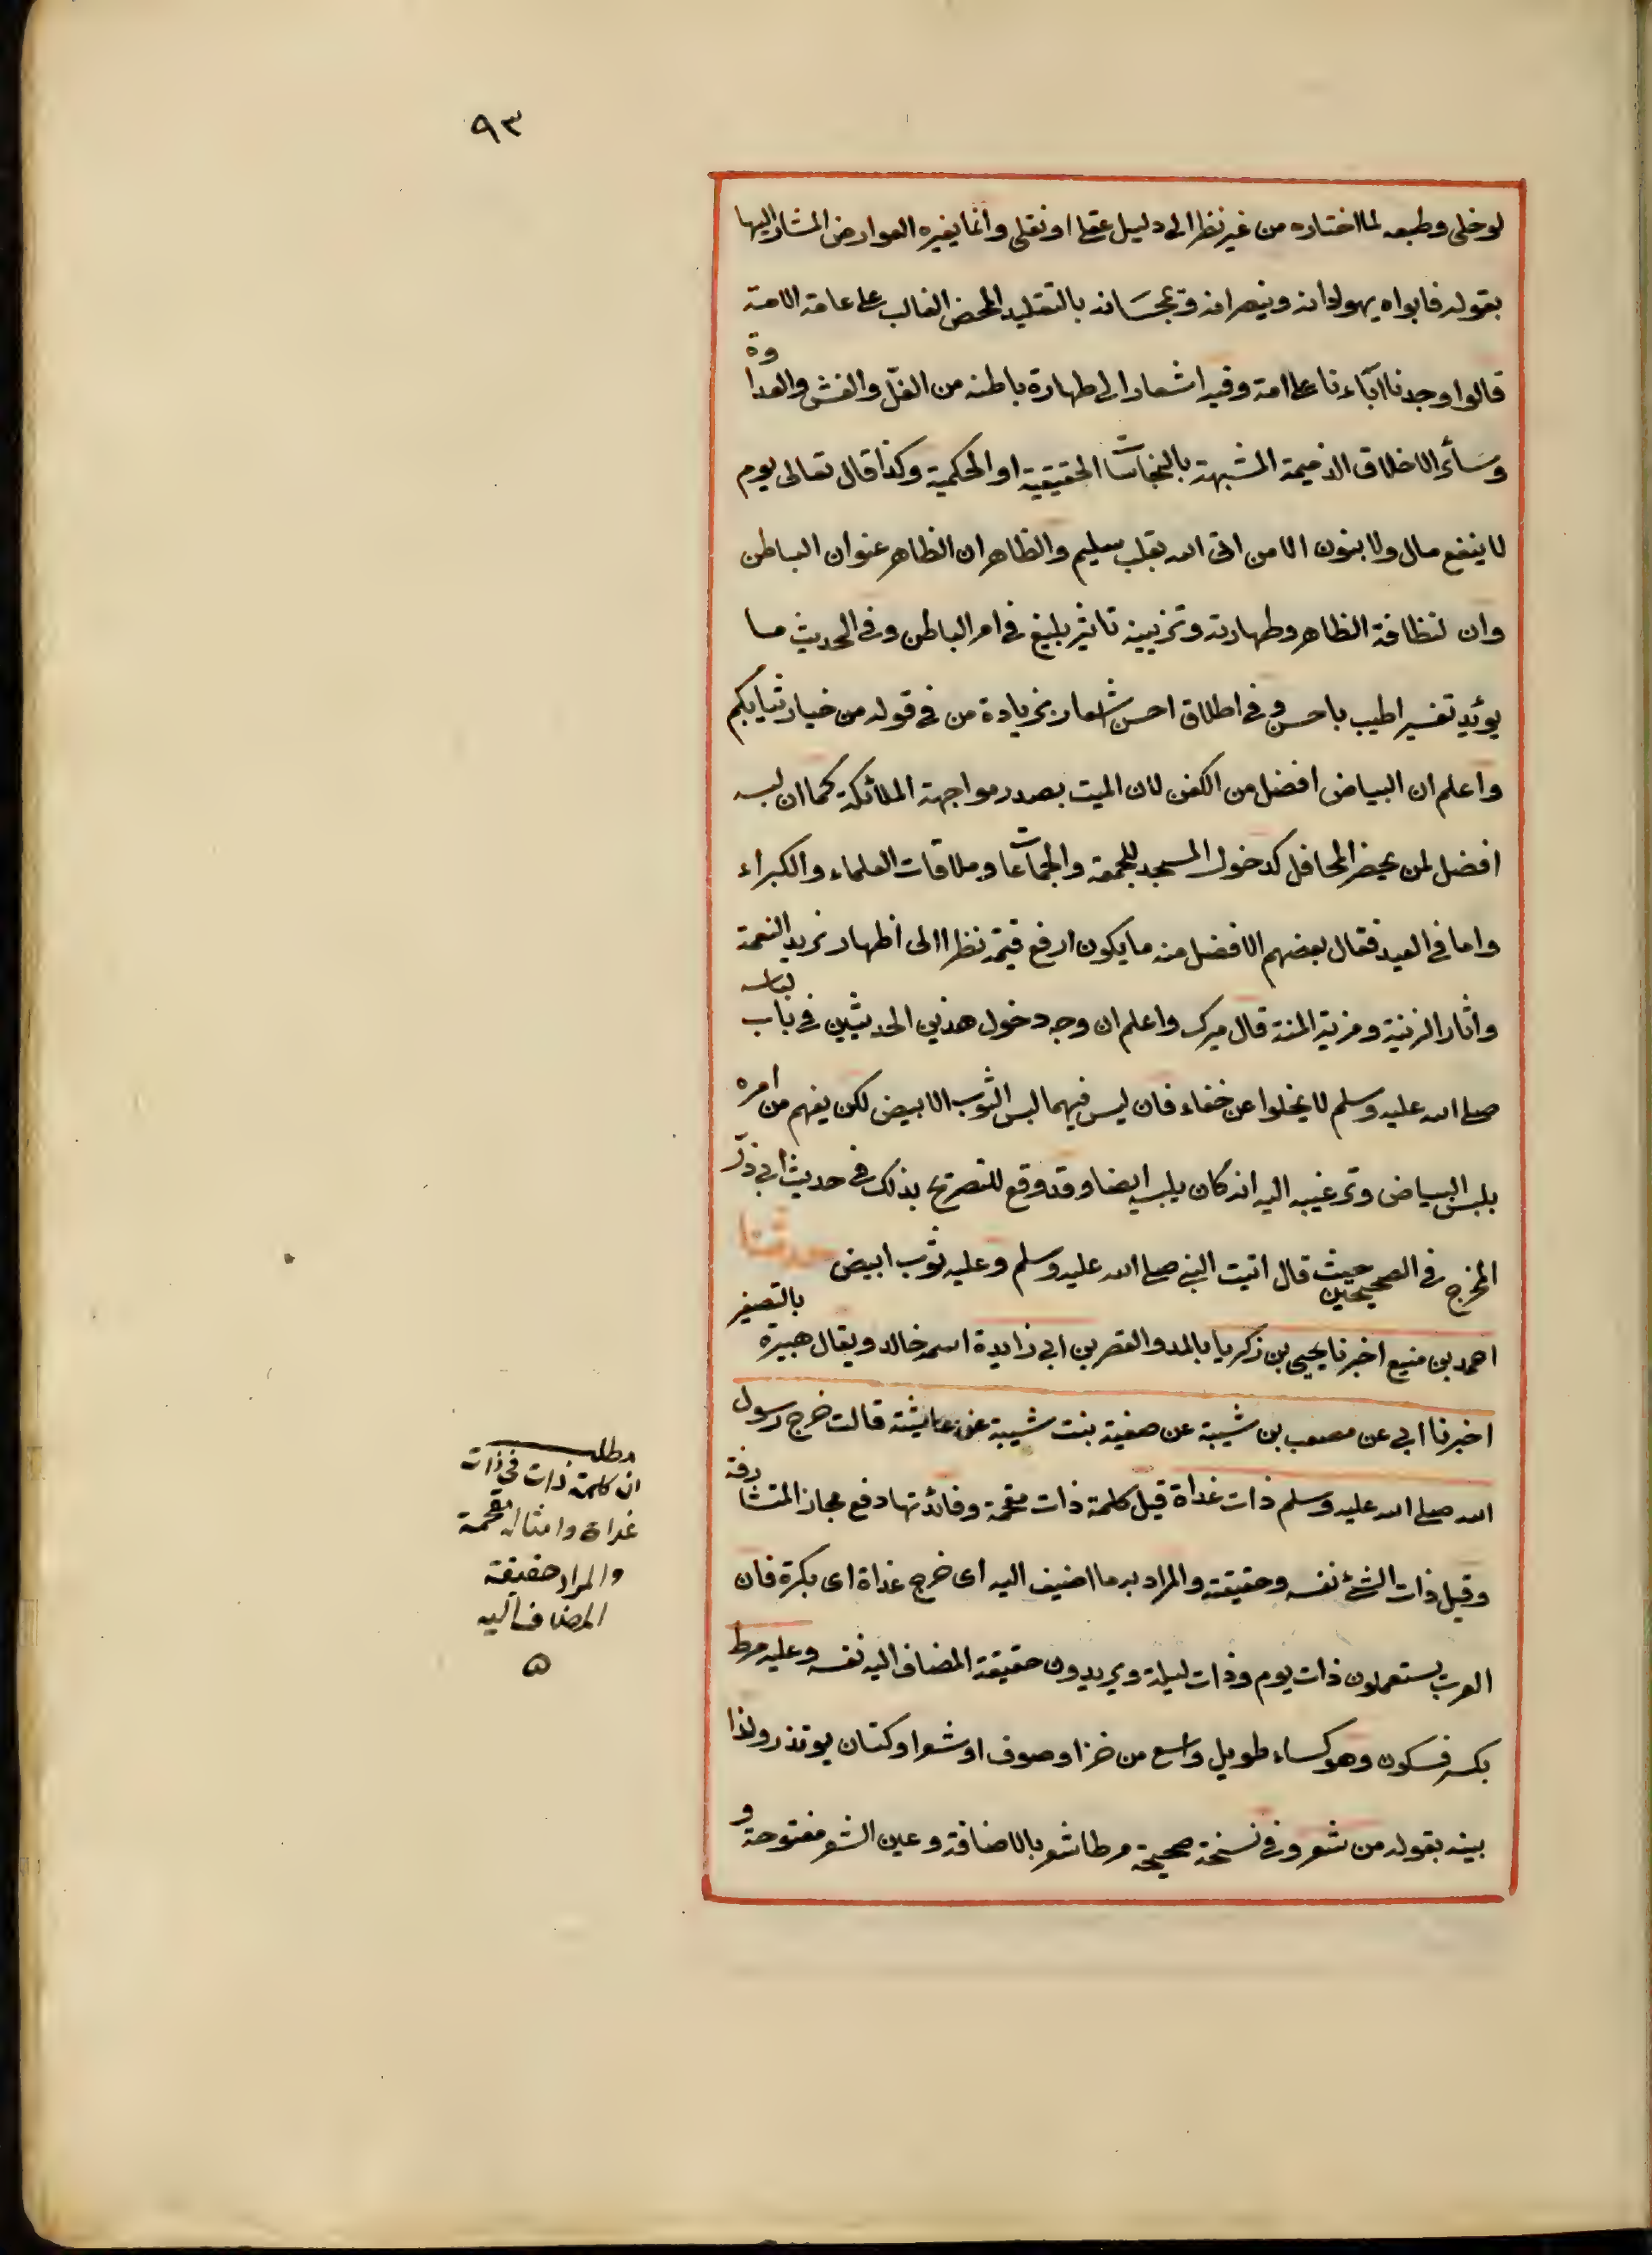 ٩٣
لو خلى وطبعه لما اختاره من غير نظر الى دليل عقلى او نقلى وانما يغيره العوارض المشار اليها
بقوله فابواه يهودانه وينصرانه ويمجسانه بالتقليد المحض الغالب على عامة الامة
قالوا وجدنا اباءنا على امة وفيه اشعار الى طهارة باطنه من الغلّ والغش والعداوة
وسائر الاخلاق الذميمة المشبهة بالنجاسات الحقيقية او الحكمية وكذا قال تعالى يوم
لا ينفع مال ولا بنون الا من اتى الله بقلب سليم والظاهر ان الظاهر عنوان الباطن
وان لنظافة الظاهر وطهارته وتزيينه تاثير بليغ فى امر الباطن وفى الحديث ما
يؤيد تفسير اطيب باحسن وفى اطلاق احسن اشعار بزيادة من فى قوله من خيار ثيابكم
واعلم ان البياض افضل من الكفن لان الميت بصدد مواجهة الملائكة كما ان لبسه
افضل لمن يحضر المحافل كدخول المسجد للجمعة والجماعات وملاقات العلماء والكبراء
واما فى العيد فقال بعضهم الافضل منه ما يكون ارفع قيمة نظرا الى اظهار مزيد النعمة
واثار الزينة ومزية المنة قال ميرك واعلم ان وجه دخول هذين الحديثين فى باب لباسه
صلى الله عليه وسلم لا يخلوا عن خفاء فان ليس فيهما لبس الثوب الابيض لكن يفهم من امره
بلبس البياض وترغيبه اليه انه كان يلبسه ايضا وقد وقع للتصريح بذلك فى حديث ابى ذرّ
المخرج فى الصحيحين حيث قال اتيت النبى صلى الله عليه وسلم وعليه ثوب ابيض حدثنا
احمد بن منيع اخبرنا يحيى بن زكريا بالمد والقصر بن ابى زايدة اسمه خالد ويقال هبيرة بالتصغير
اخبرنا ابى عن مصعب بن شيبة عن صفية بنت شيبة عن عايشة قالت خرج رسول
الله صلى الله عليه وسلم ذات غداة قيل كلمة ذات مقحمة وفائدتها دفع مجاز المتشارفة
وقيل ذات الشئ نفسه وحقيقته والمراد به ما اضيف اليه اى خرج غداة اى بكرة فان
العرب يستعملون ذات يوم وذات ليلة ويريدون حقيقة المضاف اليه نفسه وعليه مرط
بكسر فسكون وهو كساء طويل واسع من خز او صوف او شعر او كتان يوتذر ولذا
بينه بقوله من شعر وفى نسخة صحيحة مرطا شعر بالاضافة وعين الشعر مفتوحة و
مطلب
ان كلمة ذات فى ذات
غداة وامثاله مقحمة
والمراد حقيقة
المضاف اليه